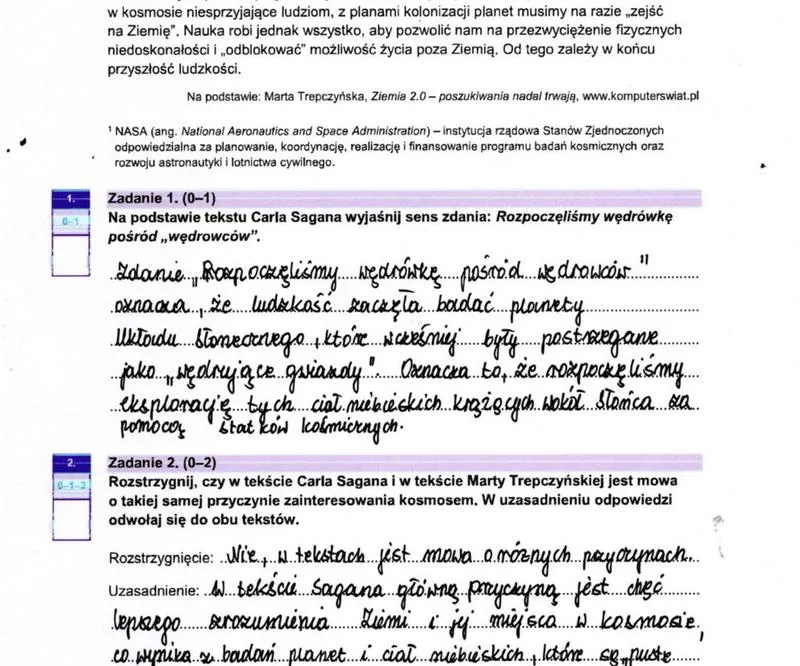 w kosmosie niesprzyjające ludziom, z planami kolonizacji planet musimy na razie „zejść
na Ziemię”. Nauka robi jednak wszystko, aby pozwolić nam na przezwyciężenie fizycznych
niedoskonałości i „odblokować” możliwość życia poza Ziemią. Od tego zależy w końcu
przyszłość ludzkości.
Na podstawie: Marta Trepczyńska, Ziemia 2.0 – poszukiwania nadal trwają, www.komputerswiat.pl
¹ NASA (ang. National Aeronautics and Space Administration) – instytucja rządowa Stanów Zjednoczonych
odpowiedzialna za planowanie, koordynację, realizację i finansowanie programu badań kosmicznych oraz
rozwoju astronautyki i lotnictwa cywilnego.
1. Zadanie 1. (0–1)
0–1
Na podstawie tekstu Carla Sagana wyjaśnij sens zdania: Rozpoczęliśmy wędrówkę
pośród „wędrowców”.
Zdanie „Rozpoczęliśmy wędrówkę pośród wędrowców”
oznacza, że ludzkość zaczęła badać planety
Układu Słonecznego, które wcześniej były postrzegane
jako „wędrujące gwiazdy”. Oznacza to, że rozpoczęliśmy
eksplorację tych ciał niebieskich krążących wokół Słońca za
pomocą statków kosmicznych.
2. Zadanie 2. (0–2)
0–1–2
Rozstrzygnij, czy w tekście Carla Sagana i w tekście Marty Trepczyńskiej jest mowa
o takiej samej przyczynie zainteresowania kosmosem. W uzasadnieniu odpowiedzi
odwołaj się do obu tekstów.
Rozstrzygnięcie: Nie, w tekstach jest mowa o różnych przyczynach.
Uzasadnienie: W tekście Sagana główną przyczyną jest chęć
lepszego zrozumienia Ziemi i jej miejsca w kosmosie,
co wynika z badań planet i ciał niebieskich, które są „puste